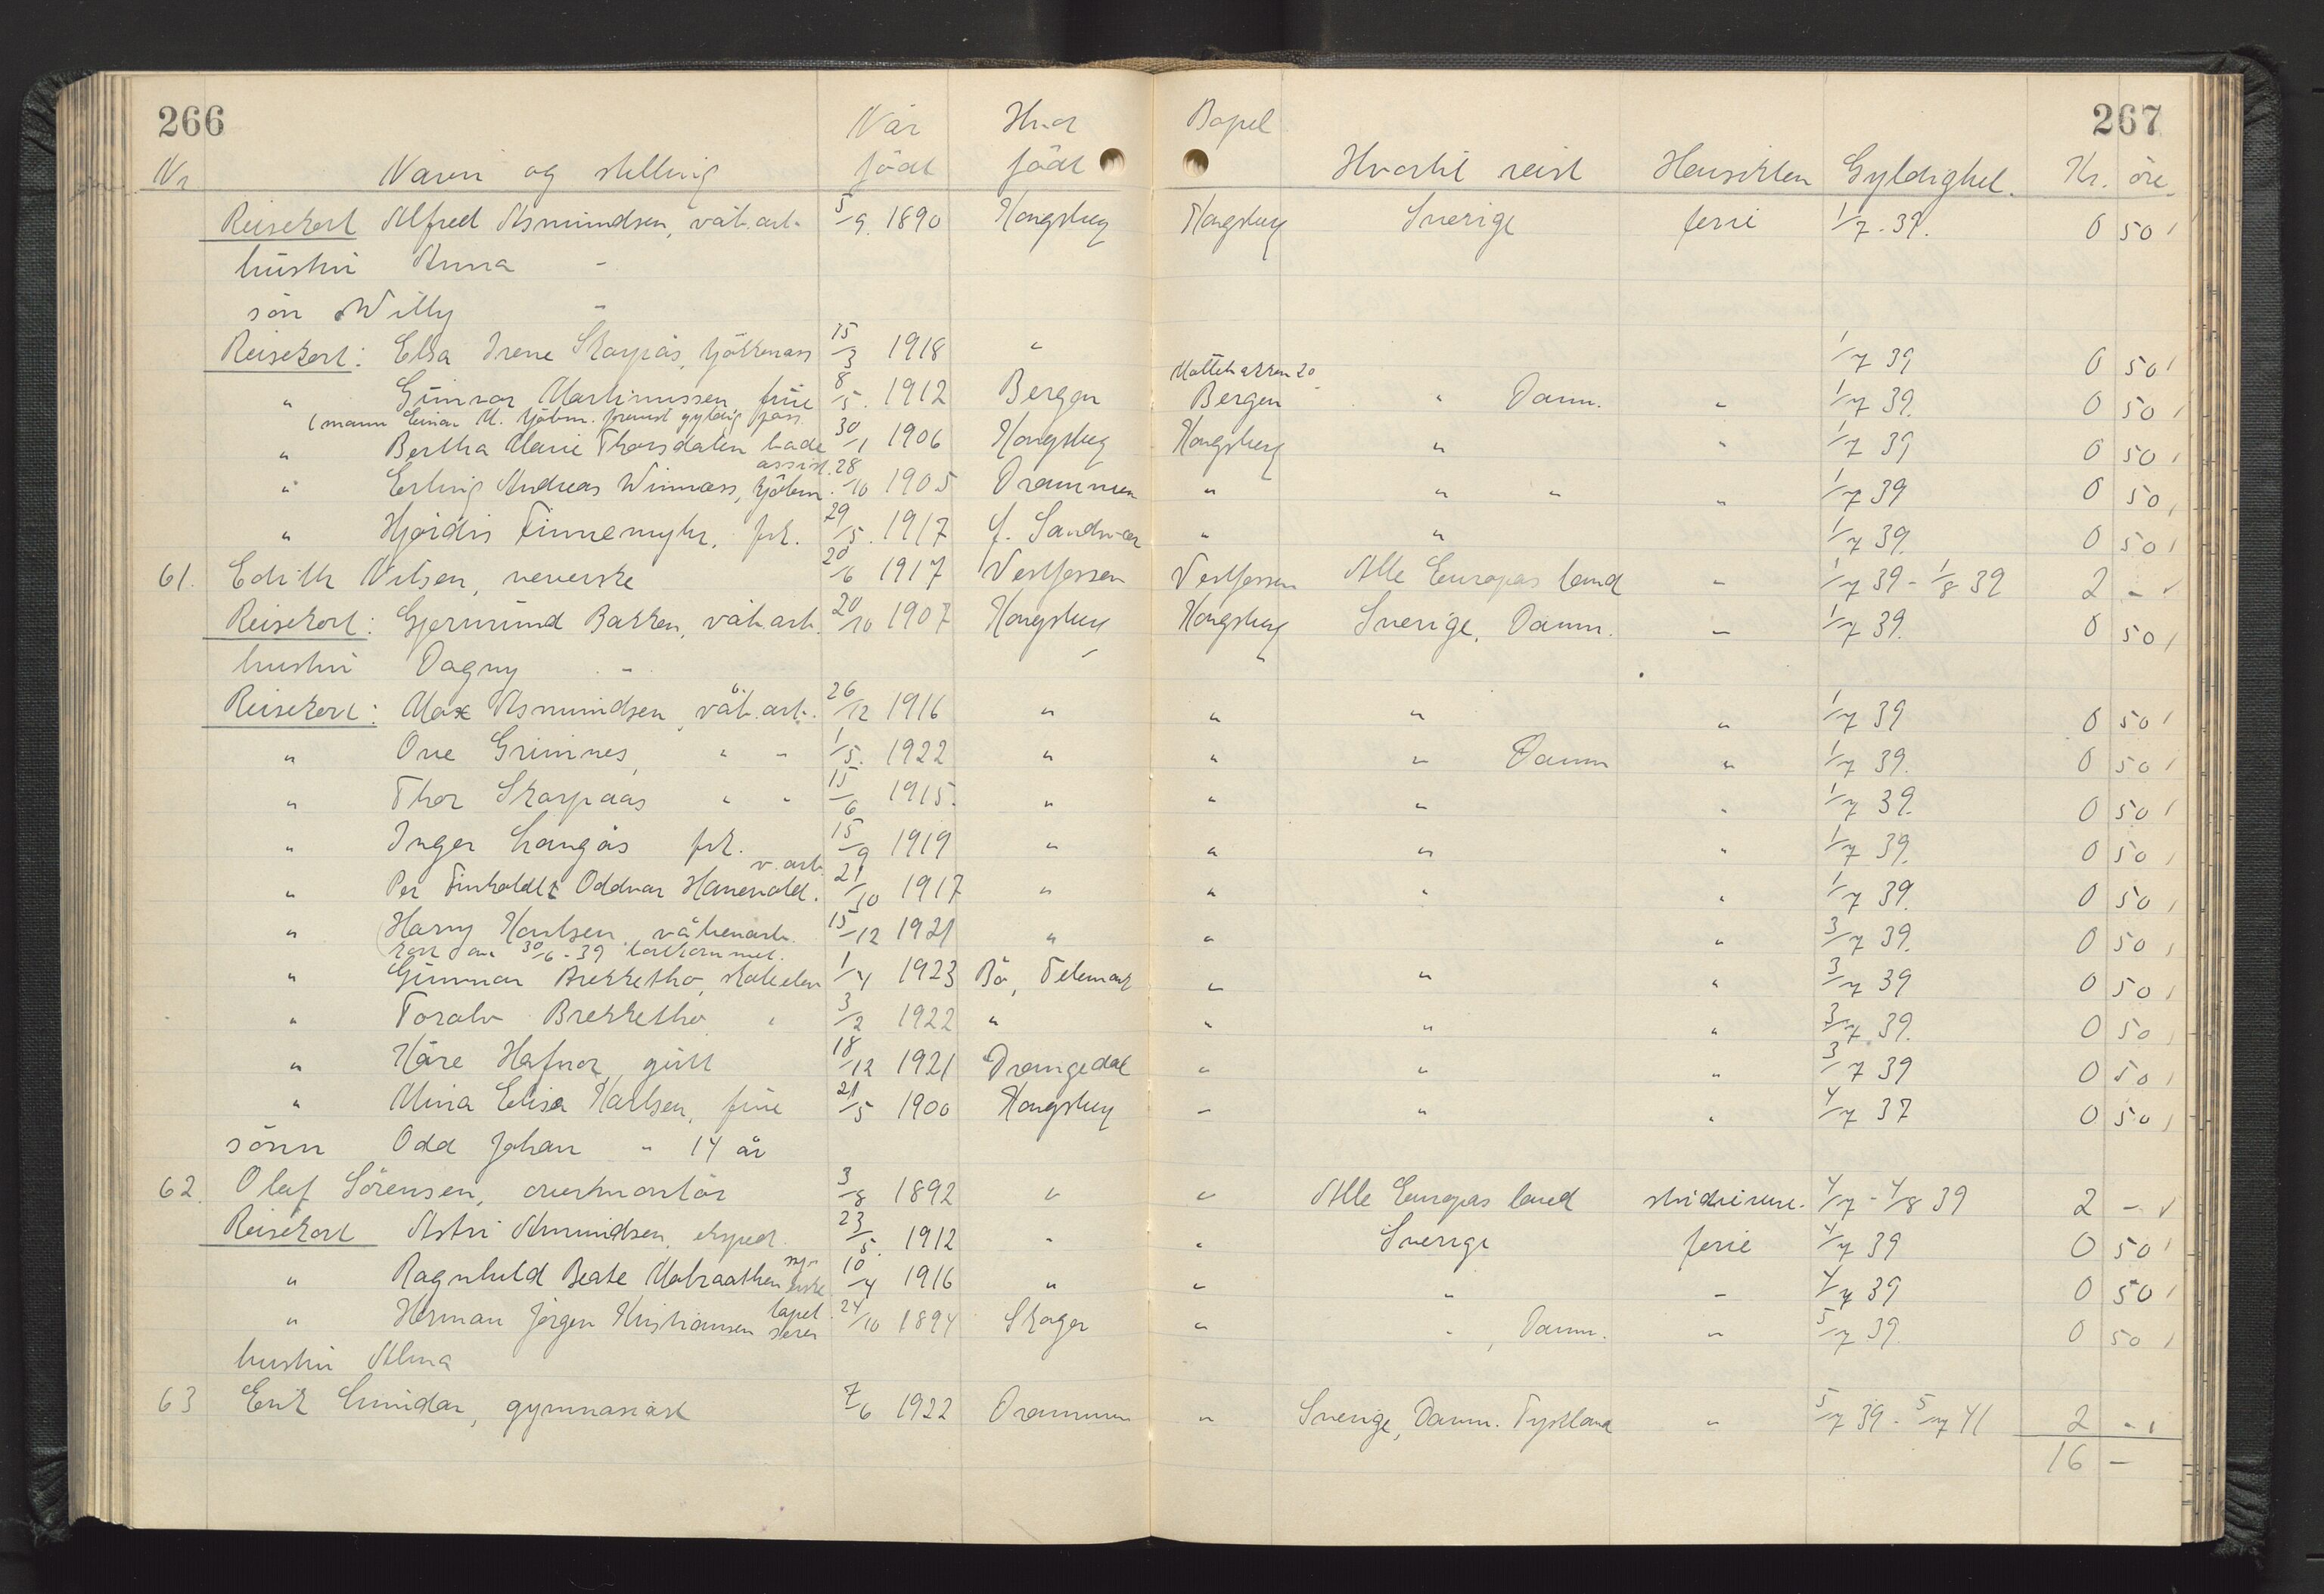 266
267
Når Hvor Bopel
Nr Navn og stilling födt födt Hvortil reist Hensikten Gyldighet. Kr. öre.
Reisekort Alfred Asmundsen, våb. arb. 5/9. 1890 Kongsberg Kongsberg Sverige ferie 1/7 - 39. 0 50
hustru Anna -
sön Willy "
Reisekort: Elsa Irene Skarpås, kjökkenass 15/3 1918 " 1/7 39 0 50
" Gunvor Martinussen, frue 8/5. 1912 Bergen Bergen " Danm. " 1/7 39. 0 50
(mann Einar M. kjöbm. forevist gyldig pass.
" Bertha Marie Thorsdalen bade assist. 30/1 1906 Kongsberg Kongsberg " " 1/7 39 0 50
" Erling Andreas Winnæss, kjöbm. 28/10 1905 Drammen " " " " 1/7 39 0 50
" Hjördis Finnemyhr, frk. 29/5. 1917 Y. Sandsvær " " 1/7 39. 0 50
61. Edith Nilsen, veverske 20/6 1917 Vestfossen Vestfossen Alle Europas land " 1/7 39 - 1/8 39 2 -
Reisekort: Gjermund Bakken, våb. arb. 20/10 1907 Kongsberg Kongsberg Sverige, Danm. " 1/7 39. 0 50
hustru Dagny - " "
Reisekort: Max Asmundsen, våb. arb. 26/12 1916 " " " " 1/7 39 0 50
" Ove Grimnes, " " 1/5. 1922 " " " Danm " 1/7 39. 0 50
" Thor Skarpaas " " 15/6 1915. " " " " 1/7 39. 0 50
" Inger Langås frk. 15/9 1919 " " " " 1/7 39. 0 50
" Per Oddvar Hanevold. v. arb. 21/10 1917 " " " " 1/7 39. 0 50
" Harry Karlsen våbenarb. 15/12 1921 " " " 3/7 39. 0 50
30/6 - 39
" Gunnar Brekketho, skoleelev 1/4 1923 Bö, Telemark " " " 3/7 39 0 50
" Toralv Brekketho " 3/2 1922 " " " " 3/7 39. 0 50
" Kåre Hafnor gutt 18/12 1921 Drangedal " " " 3/7 39 0 50
" Mina Elisa Karlsen, frue 21/5 1900 Kongsberg " " " 4/7 37 0 50
sönn Odd Johan " 14 år
62. Olaf Sörensen, overmontör 3/8 1892 " " Alle Europas land studiereise. 4/7 - 4/8 39 2 -
Reisekort Astri Amundsen, exped. 23/5. 1912 " " Sverige ferie 4/7 39 0 50
" Ragnhild Beate 10/4 1916 " " " " 4/7 39 0 50
" Herman Jörgen Kristiansen tapet serer 24/10 1894 Skoger " " , Danm. " 5/7 39. 0 50
hustru Alma
63 Erik gymnasiast 7/6 1922 Drammen " Sverige, Danm. Tyskland " 5/7 39 - 5/7 41 2 -
16 -